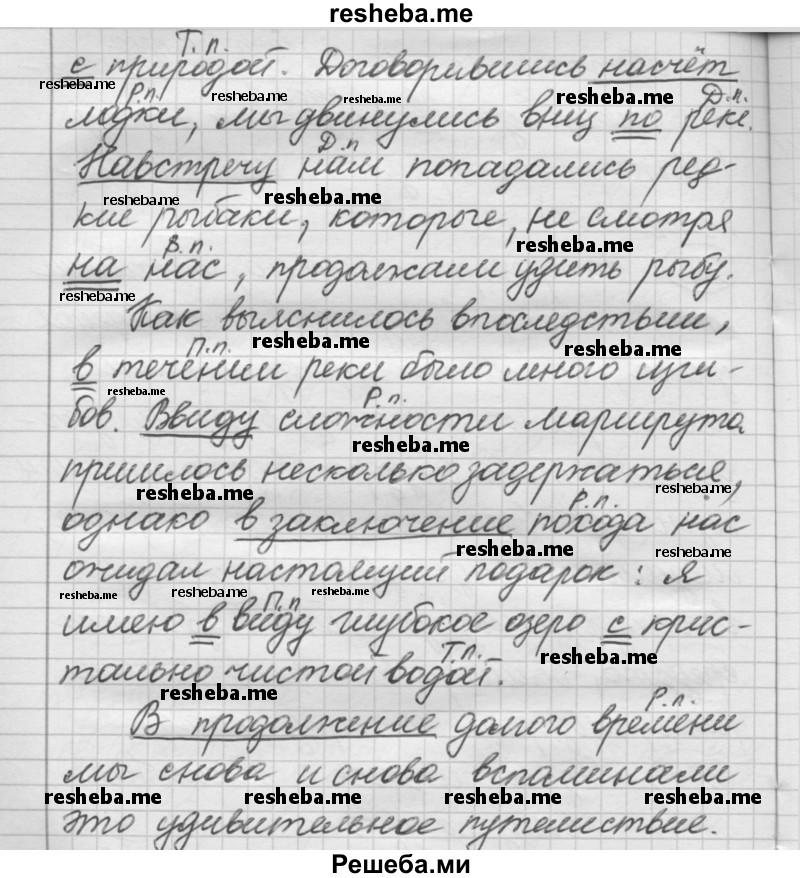 resheba.me
Т.п.
с природой. Договорившись насчёт
resheba.me resheba.me resheba.me resheba.me
Р.п. Д.п.
лодки, мы двинулись вниз по реке.
Д.п
Навстречу нам попадались ред-
resheba.me resheba.me
кие рыбаки, которые, не смотря
В.п. resheba.me
на нас, продолжали удить рыбу.
resheba.me
Как выяснилось впоследствии,
П.п. resheba.me resheba.me
в течении реки было много изги-
resheba.me Р.п.
бов. Ввиду сложности маршрута
resheba.me
пришлось несколько задержаться,
resheba.me resheba.me
Р.п.
однако в заключение похода нас
resheba.me resheba.me
ожидал настоящий подарок: я
resheba.me resheba.me resheba.me
П.п
имею в виду глубокое озеро с крис-
Т.п. resheba.me
тально чистой водой.
resheba.me
Р.п.
В продолжение долгого времени
мы снова и снова вспоминали
resheba.me resheba.me resheba.me resheba.me
это удивительное путешествие.
Решеба.ми